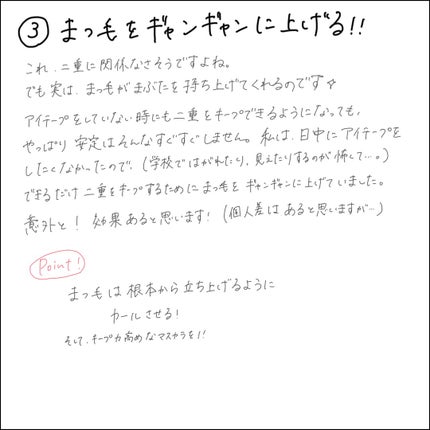 ③ まつ毛をギャンギャンに上げる!!
これ、二重に関係なさそうですよね。
でも実は、まつ毛がまぶたを持ち上げてくれるのです☆
アイテープをしていない時にも二重をキープできるようになっても、
やっぱり安定はそんなすぐすぐしません。私は、日中にアイテープを
したくなかったので、(学校ではがれたり、見えたりするのが怖くて…。)
できるだけ二重をキープするためにまつ毛をギャンギャンに上げていました。
意外と! 効果あると思います! (個人差はあると思いますが…)
Point!
まつ毛は根本から立ち上げるように
カールさせる!
そして、キープ力高めなマスカラを!!